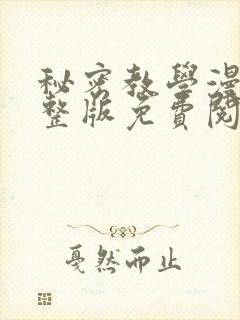 秘密教學漫
整版免費閱
戛然而止